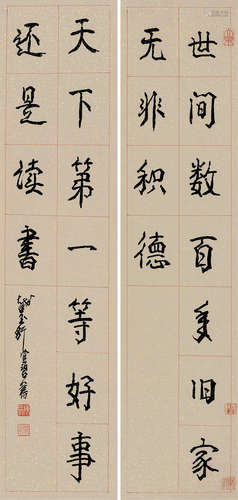 世间数百年旧家
无非积德
天下第一等好事
还是读書